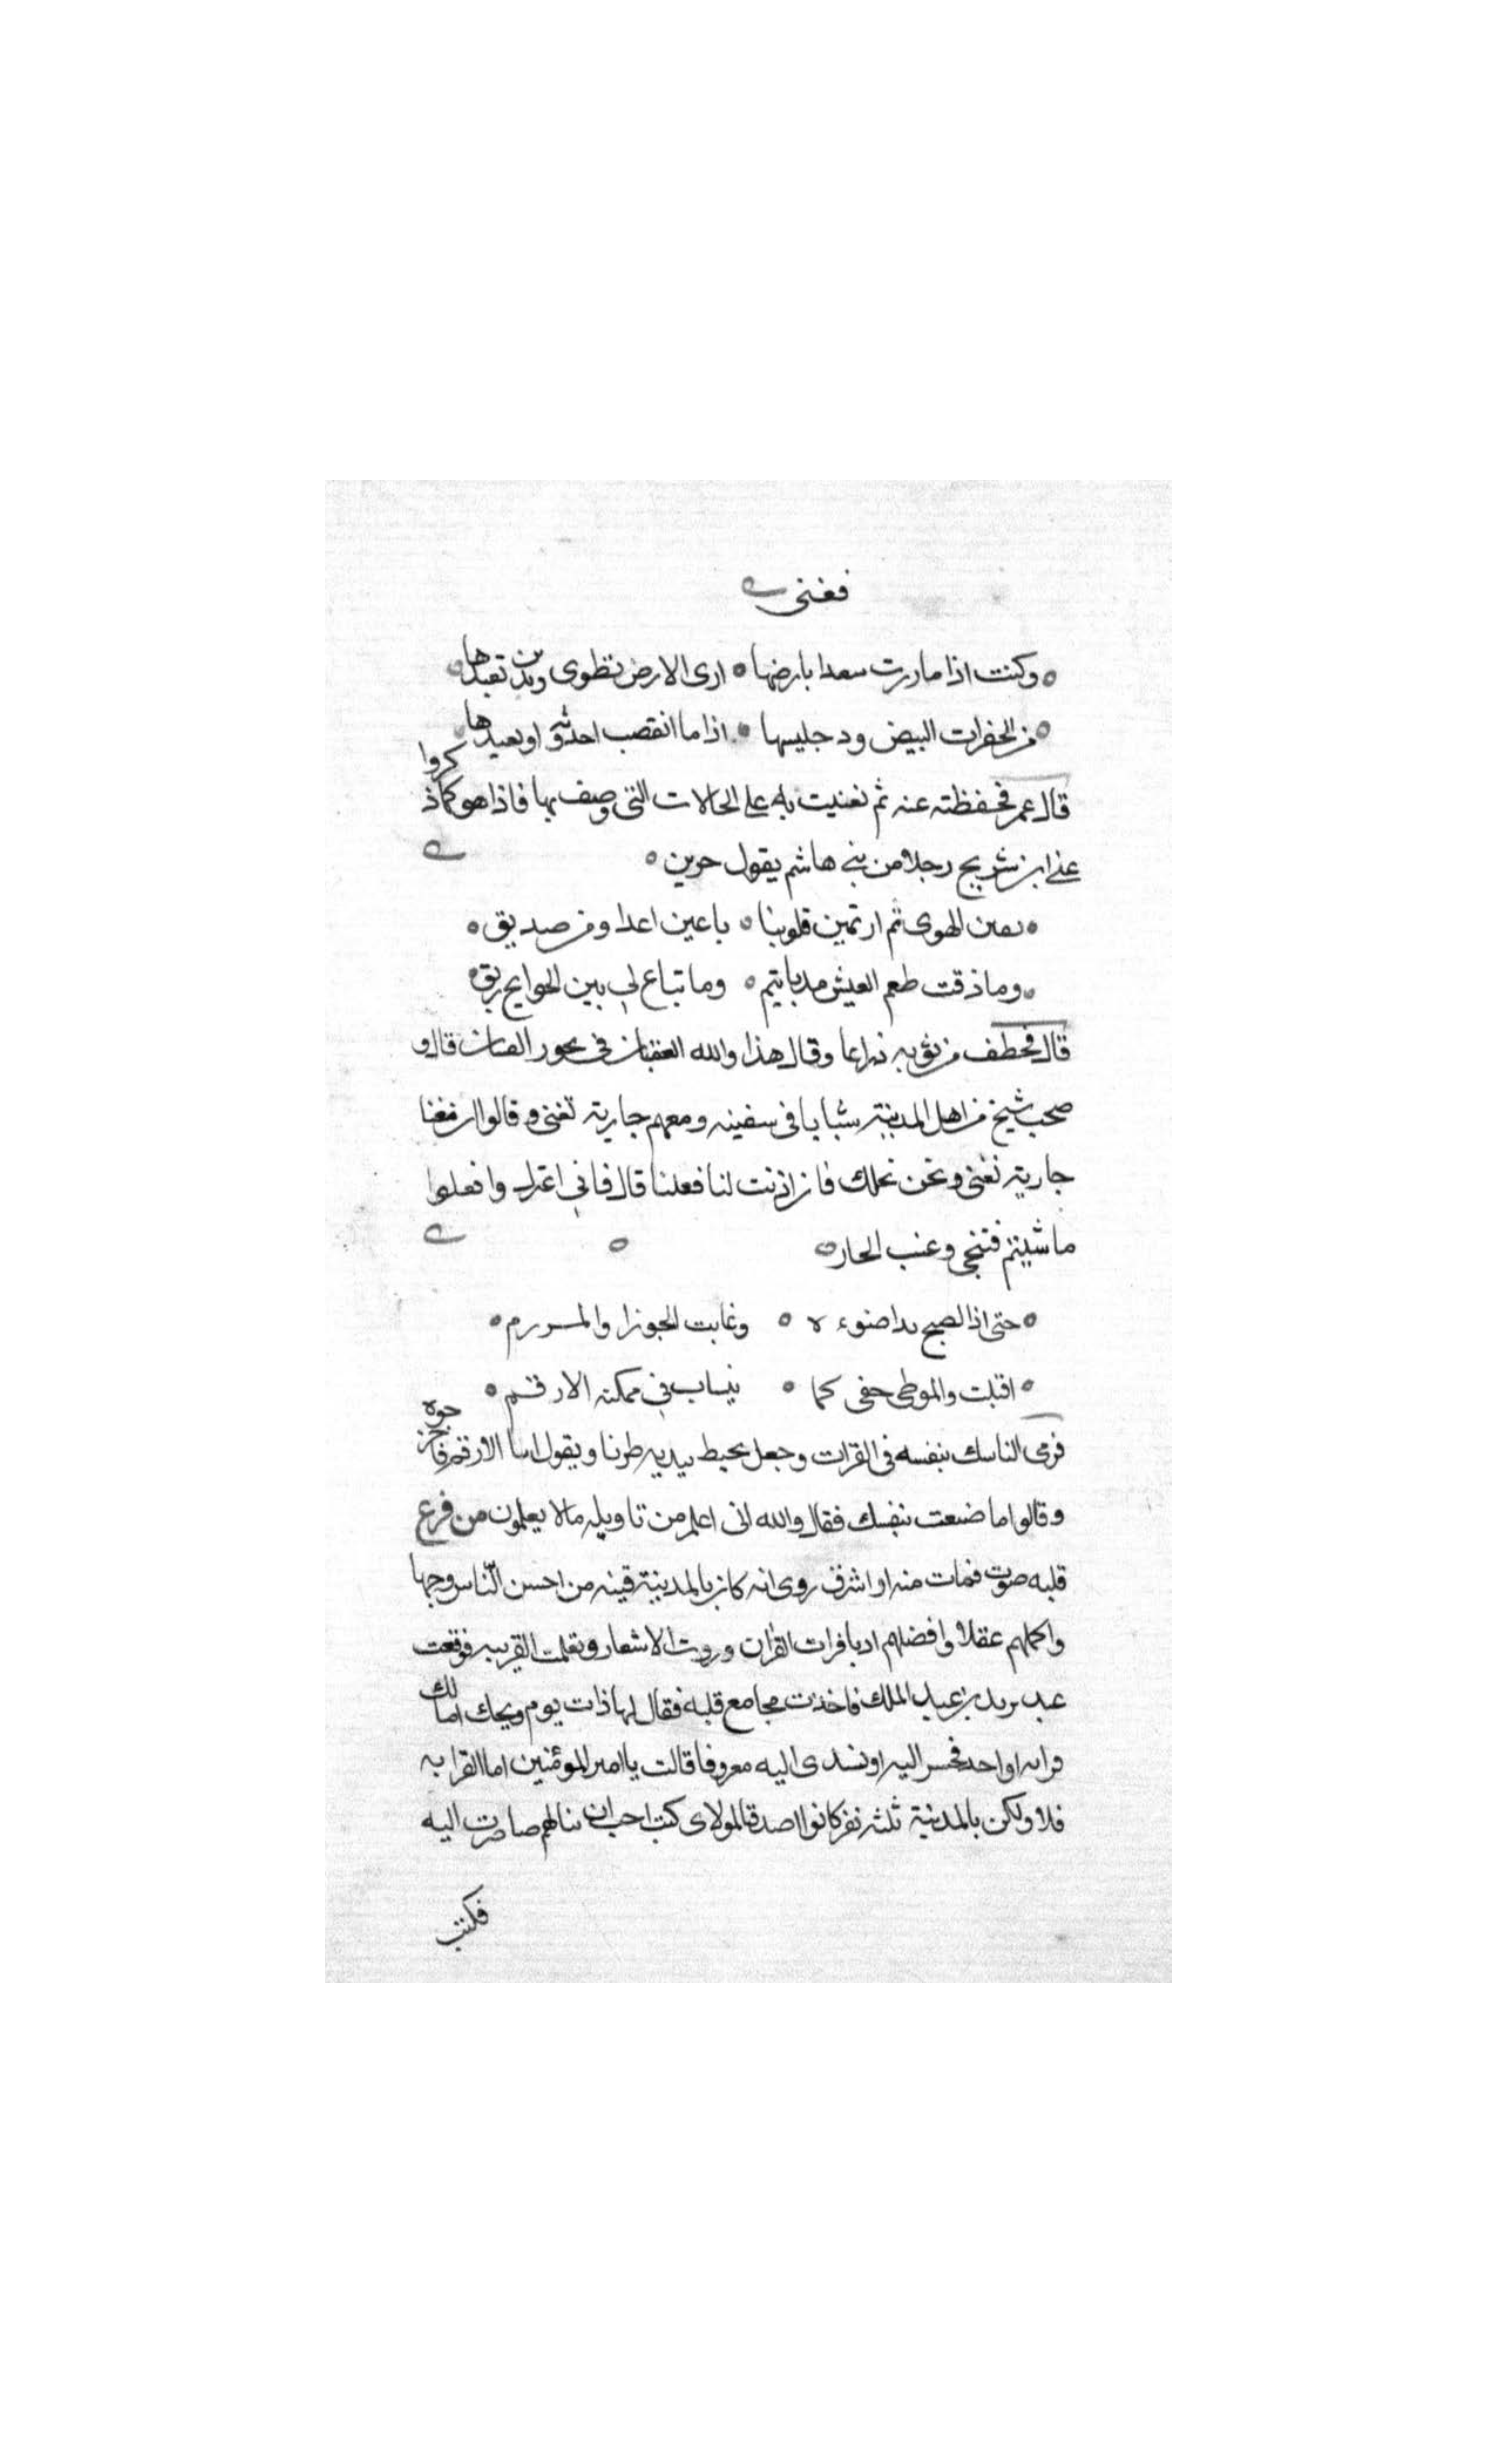 فغنى
وكنت اذا ما زرت سعدا بارضها ه ارى الارض تطوى ويدن بعيدها
من الخفرات البيض ود جليسها ه اذا ما انقضت احدثه او يعيدها
قال عمر فحفظته عنه ثم تغنيت به على الحالات التى وصف بها فاذا هو كما ذكروا
غنى ابن شريح رجلا من بنى هاشم يقول جرير ه
بعين الهوى ثم ارتمين قلوبنا ه باعين اعدا ومن صديق ه
وما ذقت طعم العيش ه وما تباع لى بين الجوانح ريق
قال فخطف من ثوبه ذراعا وقال هذا والله العقيان فى نحور القيان قال و
صحب شيخ من اهل المدينة شبابا فى سفينه ومعهم جارية تغنى وقالوا ان معنا
جارية تغنى ونحن نجلك فان اذنت لنا فعلنا قال فانى اعتزل وافعلوا
ما شيتم فتنحى وغنت الجارية
حتى اذا الصبح بدا ضوءه ه وغابت الجوزا والمرزم ه
اقبلت والموطى خفى كما ه ينساب فى مكمنه الارقم ه
فرمى الناسك بنفسه فى الفرات وجعل يخبط بيديه طربا ويقول انا الارقم فاخرجوه
وقالوا ما صنعت بنفسك فقال والله انى اعلم من تاويله ما لا يعلمون من قرع
قلبه صوت فمات منه او اشرف روى انه كان بالمدينة قينه من احسن الناس وجها
واكملهم عقلا وافضلهم ادبا قرات القران وروت الاشعار وتعلمت العربيه فوقعت
عند يزيد بن عبد الملك فاخذت مجامع قلبه فقال لها ذات يوم ويحك اما لك
قرابه او احد اليه او نسدى اليه معروفا قالت يا امير المومنين اما القرابه
فلا ولكن بالمدينة ثلثه نفر كانوا اصدقا لمولاى كنت احب ان ينالهم ما صرت اليه
فكتب